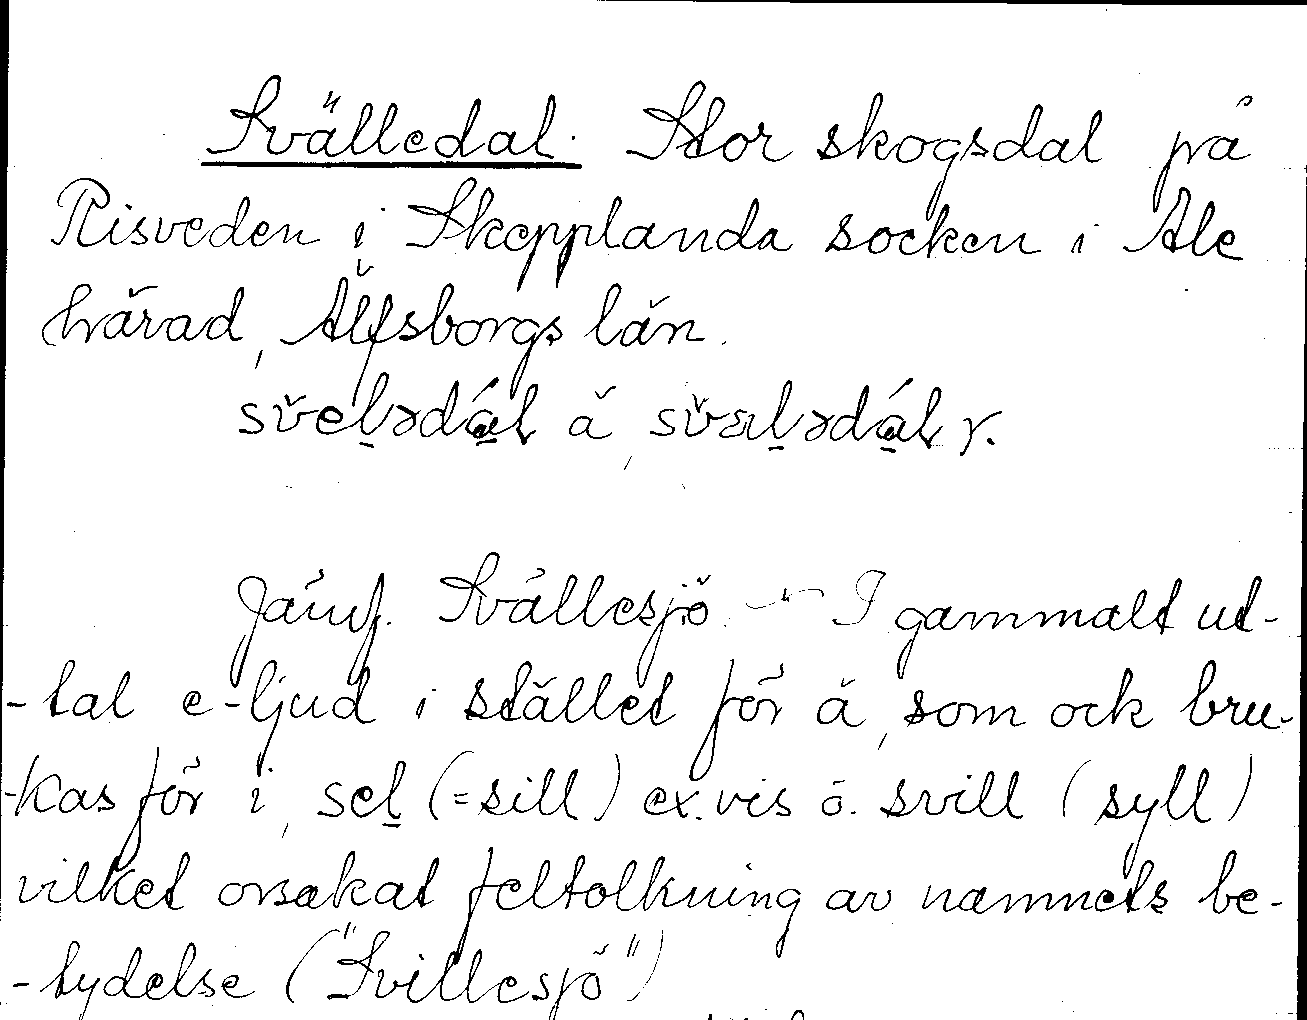 Svälledal. Stor skogsdal på
Risveden i Skepplanda socken i Ale
härad, Älfsborgs län.
svelədál ä, svælədál r.
Jämf. Svällesjö. — " — I gammalt ut-
-tal e-ljud i stället för ä, som ock bru-
-kas för i, sel (=sill) ex.vis o. svill (syll)
vilket orsakat feltolkning av namnets be-
-tydelse ("Svillesjö")